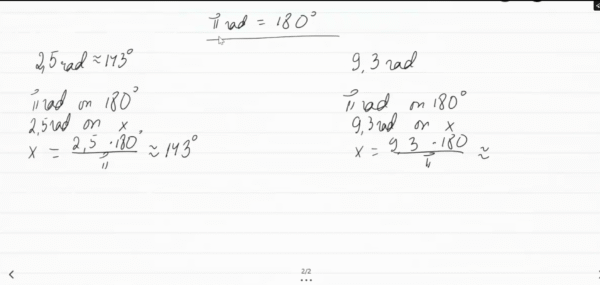 π rad = 180°
2,5 rad ≈ 143°
π rad on 180°
2,5 rad on x
x = 2,5 · 180° / π ≈ 143°
9,3 rad
π rad on 180°
9,3 rad on x
x = 9 3 · 180 / π ≈
2/2